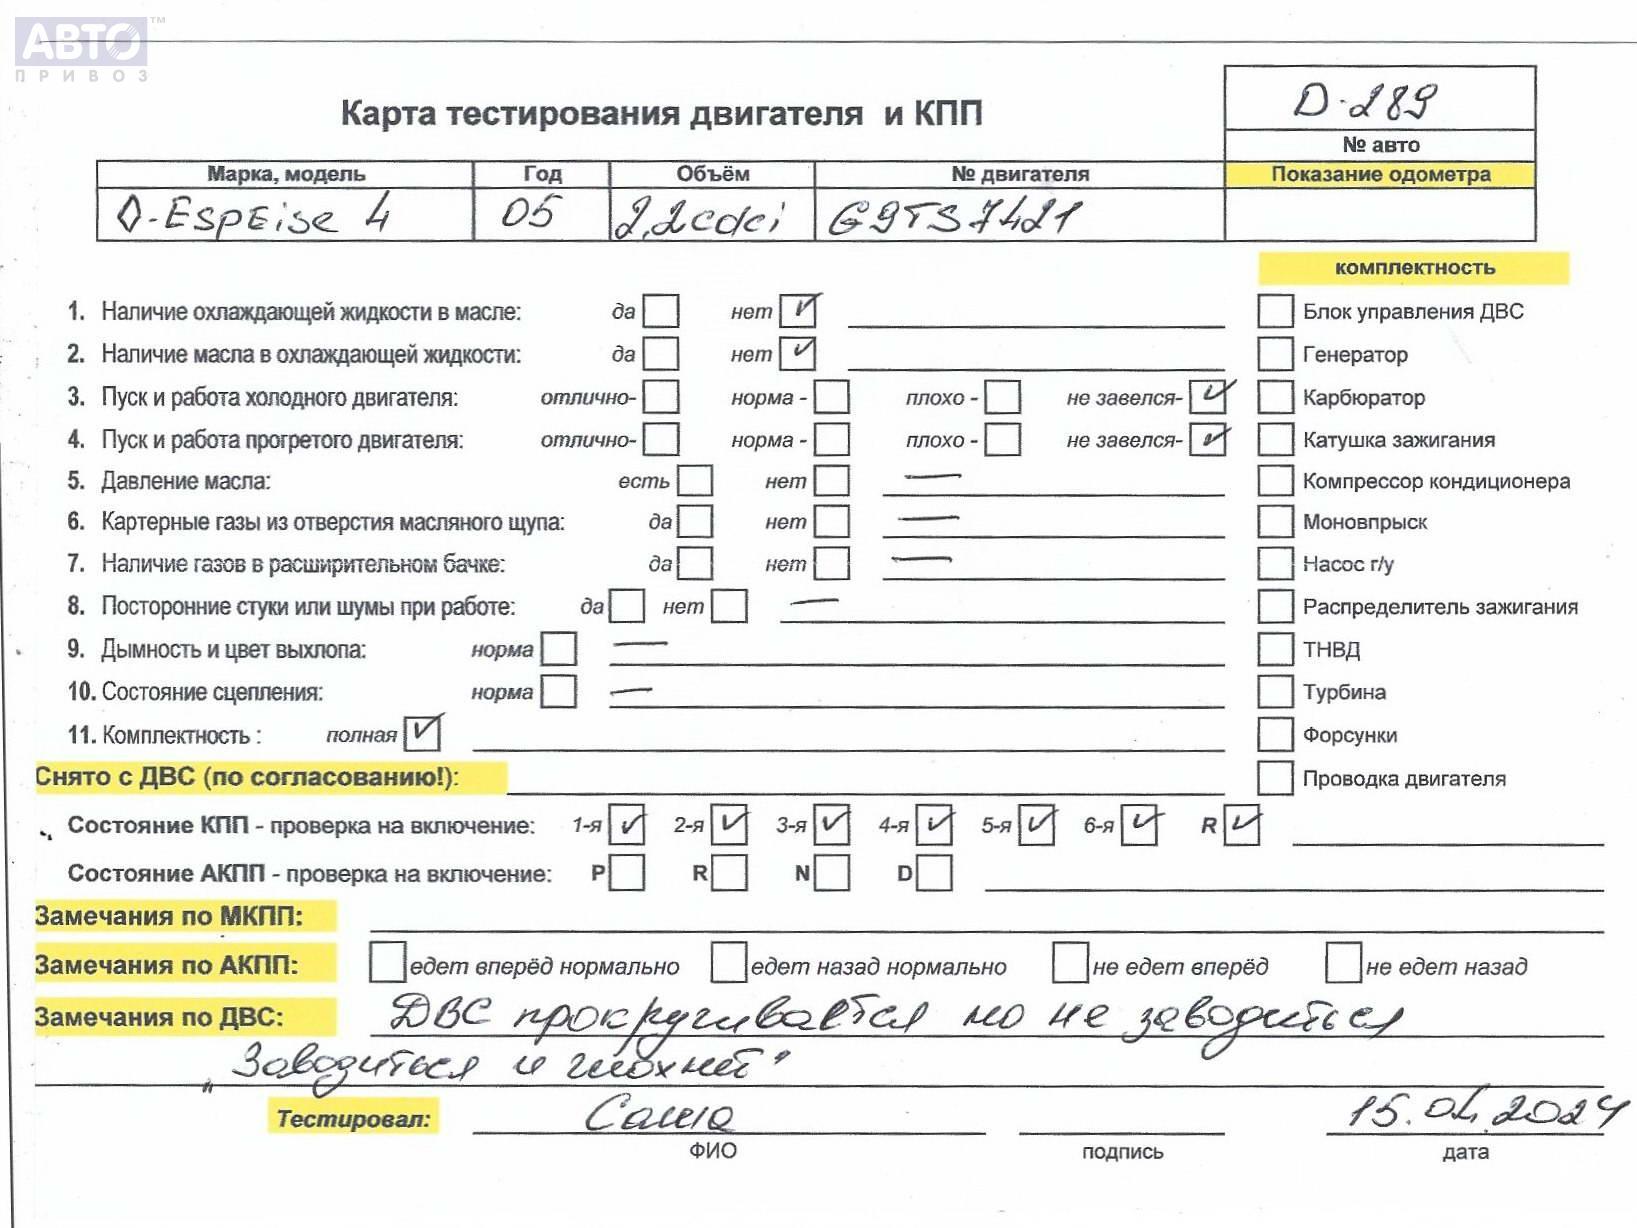 АВТО™
ПРИВОЗ
D-289
Карта тестирования двигателя и КПП
№ авто
Марка, модель Год Объём № двигателя Показание одометра
O-Espeise 4 05 2,2cdci G9TS7421
комплектность
1. Наличие охлаждающей жидкости в масле: да нет Блок управления ДВС
2. Наличие масла в охлаждающей жидкости: да нет Генератор
3. Пуск и работа холодного двигателя: отлично- норма - плохо - не завелся- Карбюратор
4. Пуск и работа прогретого двигателя: отлично- норма - плохо - не завелся- Катушка зажигания
5. Давление масла: есть нет — Компрессор кондиционера
6. Картерные газы из отверстия масляного щупа: да нет — Моновпрыск
7. Наличие газов в расширительном бачке: да нет — Насос г/у
8. Посторонние стуки или шумы при работе: да нет — Распределитель зажигания
9. Дымность и цвет выхлопа: норма — ТНВД
10. Состояние сцепления: норма — Турбина
11. Комплектность : полная Форсунки
Снято с ДВС (по согласованию!): Проводка двигателя
Состояние КПП - проверка на включение: 1-я 2-я 3-я 4-я 5-я 6-я R
Состояние АКПП - проверка на включение: P R N D
Замечания по МКПП:
Замечания по АКПП: едет вперёд нормально едет назад нормально не едет вперёд не едет назад
Замечания по ДВС: ДВС прокручивается но не заводиться
„Заводиться и глохнет"
Тестировал: Саша 15.04.2024
ФИО подпись дата